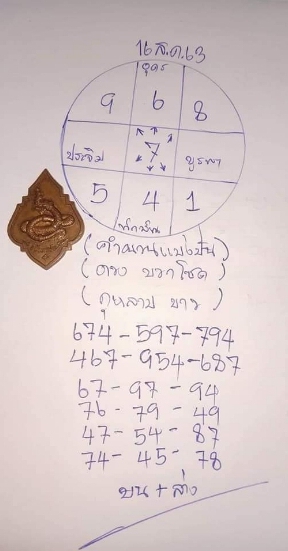 16 ส.ค.63
อุดร
9 6 8
ประจิม 7 บูรพา
5 4 1
ทักษิณ
(คำนวนแม่งปั่น)
(ดวง บวก โชค)
(กุหลาบ ขาว)
674-597-794
467-954-687
67-97-94
76-79-49
47-54-87
74-45-78
บน + ล่าง